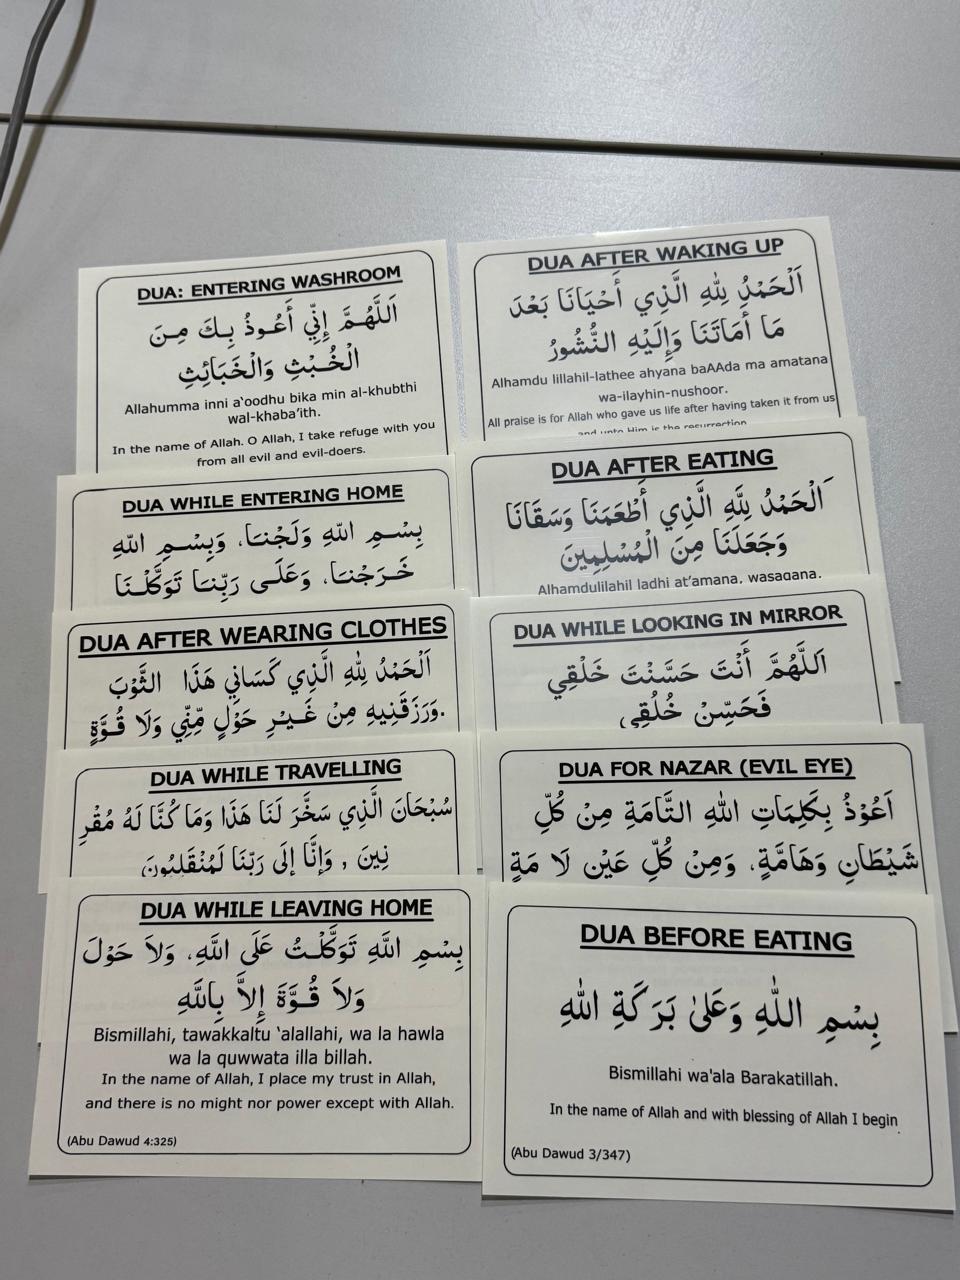 DUA: ENTERING WASHROOM
اَللَّهُمَّ إِنِّي أَعُوذُ بِكَ مِنَ
الْخُبْثِ وَالْخَبَائِثِ
Allahumma inni a‘oodhu bika min al-khubthi
wal-khaba’ith.
In the name of Allah. O Allah, I take refuge with you
from all evil and evil-doers.
DUA WHILE ENTERING HOME
بِسْمِ اللهِ وَلَجْنَا، وَبِسْمِ اللهِ
خَرَجْنَا، وَعَلَى رَبِّنَا تَوَكَّلْنَا
DUA AFTER WEARING CLOTHES
اَلْحَمْدُ لِلّهِ الَّذِي كَسَانِي هَذَا الثَّوْبَ
وَرَزَقَنِيهِ مِنْ غَيْرِ حَوْلٍ مِّنِّي وَلَا قُوَّةٍ.
DUA WHILE TRAVELLING
سُبْحَانَ الَّذِي سَخَّرَ لَنَا هَذَا وَمَا كُنَّا لَهُ مُقْرِ
نِينَ , وَإِنَّا إِلَى رَبِّنَا لَمُنْقَلِبُونَ
DUA WHILE LEAVING HOME
بِسْمِ اللَّهِ تَوَكَّلْتُ عَلَى اللَّهِ، وَلاَ حَوْلَ
وَلاَ قُوَّةَ إِلاَّ بِاللَّهِ
Bismillahi, tawakkaltu ‘alallahi, wa la hawla
wa la quwwata illa billah.
In the name of Allah, I place my trust in Allah,
and there is no might nor power except with Allah.
(Abu Dawud 4:325)
DUA AFTER WAKING UP
اَلْحَمْدُ لِلّهِ الَّذِي أَحْيَانَا بَعْدَ
مَا أَمَاتَنَا وَإِلَيْهِ النُّشُورُ
Alhamdu lillahil-lathee ahyana baAAda ma amatana
wa-ilayhin-nushoor.
All praise is for Allah who gave us life after having taken it from us
and unto Him is the resurrection
DUA AFTER EATING
اَلْحَمْدُ لِلَّهِ الَّذِي أَطْعَمَنَا وَسَقَانَا
وَجَعَلَنَا مِنَ الْمُسْلِمِينَ
Alhamdulilahil ladhi at’amana, wasaqana,
DUA WHILE LOOKING IN MIRROR
اَللَّهُمَّ أَنْتَ حَسَّنْتَ خَلْقِي
فَحَسِّنْ خُلُقِي
DUA FOR NAZAR (EVIL EYE)
اَعُوْذُ بِكَلِمَاتِ اللهِ التَّامَةِ مِنْ كُلِّ
شَيْطَانِ وَهَامَّةٍ، وَمِنْ كُلِّ عَيْن لَا مَةٍ
DUA BEFORE EATING
بِسْمِ اللّٰهِ وَعَلىٰ بَرَكَةِ اللهِ
Bismillahi wa'ala Barakatillah.
In the name of Allah and with blessing of Allah I begin
(Abu Dawud 3/347)